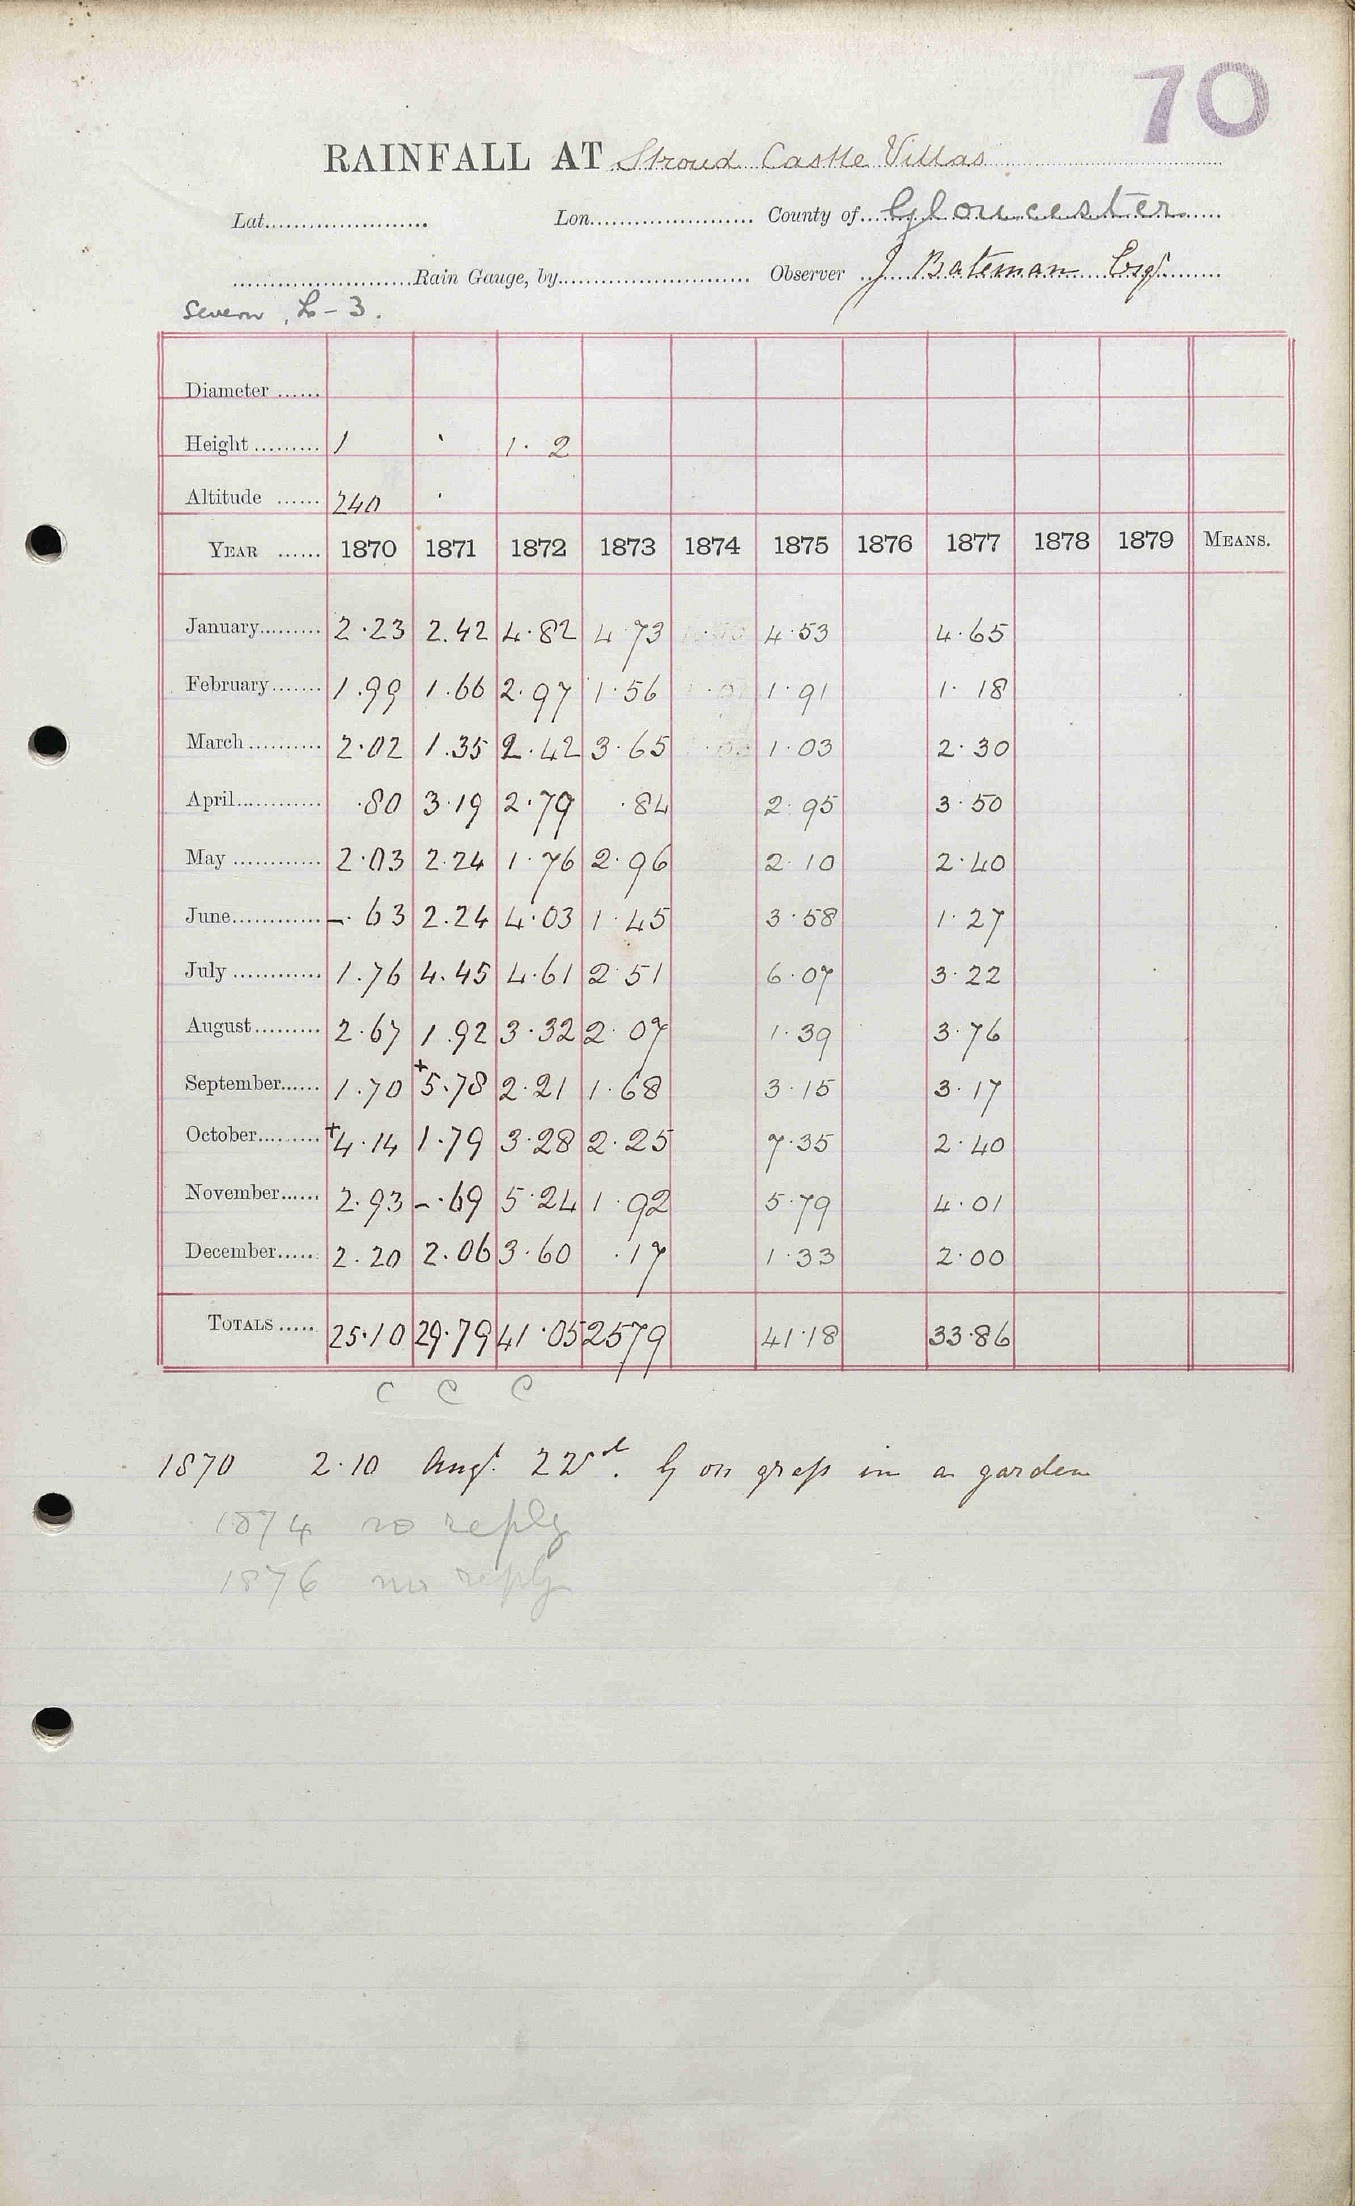 70
RAINFALL AT Stroud Castle Villas
Lat. Lon. County of Gloucester
Rain Gauge, by Observer J Bateman Esqr
Severn, L-3.
Diameter
Height 1 ' 1. 2
Altitude 240 '
YEAR 1870 1871 1872 1873 1874 1875 1876 1877 1878 1879 MEANS.
January 2.23 2.42 4.82 4.73 4.53 4.65
February 1.99 1.66 2.97 1.56 1.91 1.18
March 2.02 1.35 2.42 3.65 1.03 2.30
April .80 3.19 2.79 .84 2.95 3.50
May 2.03 2.24 1.76 2.96 2.10 2.40
June -.63 2.24 4.03 1.45 3.58 1.27
July 1.76 4.45 4.61 2.51 6.07 3.22
August 2.67 1.92 3.32 2.07 1.39 3.76
September 1.70 +5.78 2.21 1.68 3.15 3.17
October +4.14 1.79 3.28 2.25 7.35 2.40
November 2.93 -.69 5.24 1.92 5.79 4.01
December 2.20 2.06 3.60 .17 1.33 2.00
TOTALS 25.10 29.79 41.05 2579 41.18 33.86
C C C
1870 2.10 Augt. 22nd. G on grass in a garden
1874 no reply
1876 no reply